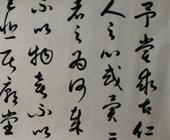 予尝求古仁
人之心或异二
者之为何哉
不以物喜不以
己悲居庙堂